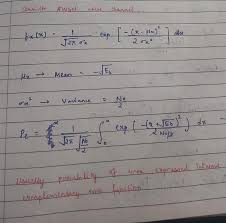 f_x(x) = 1 / √2π σx exp [ -(x - μx)² / 2σx² ] dx
μx → Mean = -√Eb
σx² → Variance = No / 2
Pe = 1 / √2π √No/2 ∫₀^∞ exp ( -(x + √Eb)² / 2 No/2 ) dx
Usually probability of error expressed
complementary error function